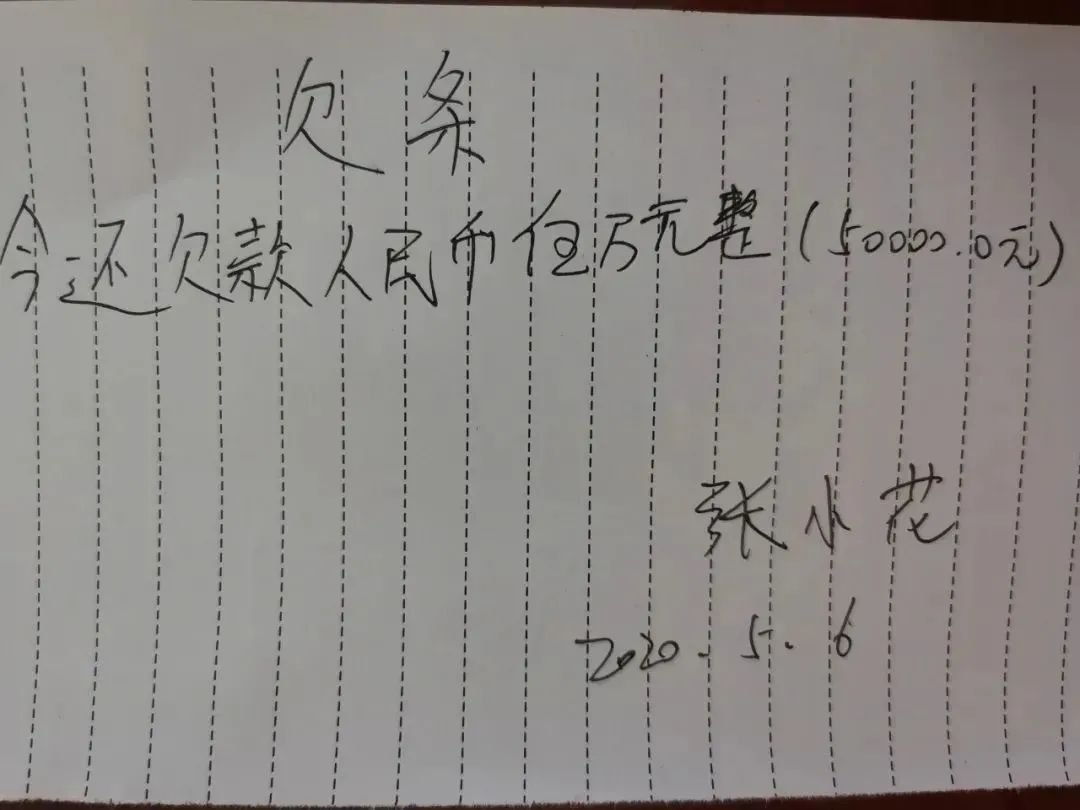 欠条
今还欠款人民币伍万元整(50000.0元)
张小花
2020.5.6